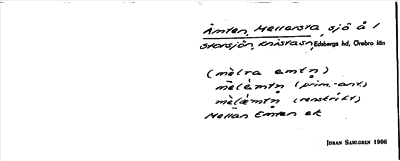 Ämten, Mellersta, sjö å /
Storsjön, Knistasn, Edsbergs hd, Örebro län
(mèlra emtn̥)
mèlémtn̥ (prim.-ant.)
mèlæ̀mtn̥ (renskrift)
Mellan Emten ek
JÖRAN SAHLGREN 1906